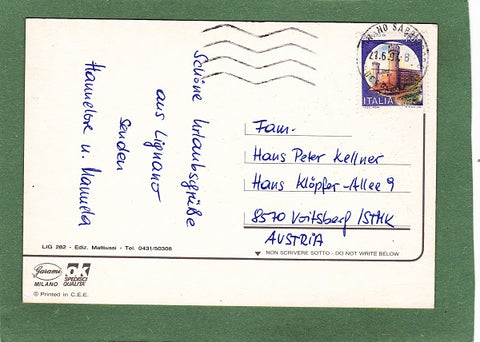 Schöne Urlaubsgrüße
aus Lignano
senden
Hannelore u. Manuela
NO SABBI
27.6.
ITALIA
Fam.
Hans Peter Kellner
Hans Klöpfer-Allee 9
8570 Voitsberg/STMK
AUSTRIA
LIG 282 - Ediz. Mattiussi - Tel. 0431/50308
▼ NON SCRIVERE SOTTO - DO NOT WRITE BELOW
Garami
MILANO
SPEDISCI
QUALITÀ
© Printed in C.E.E.